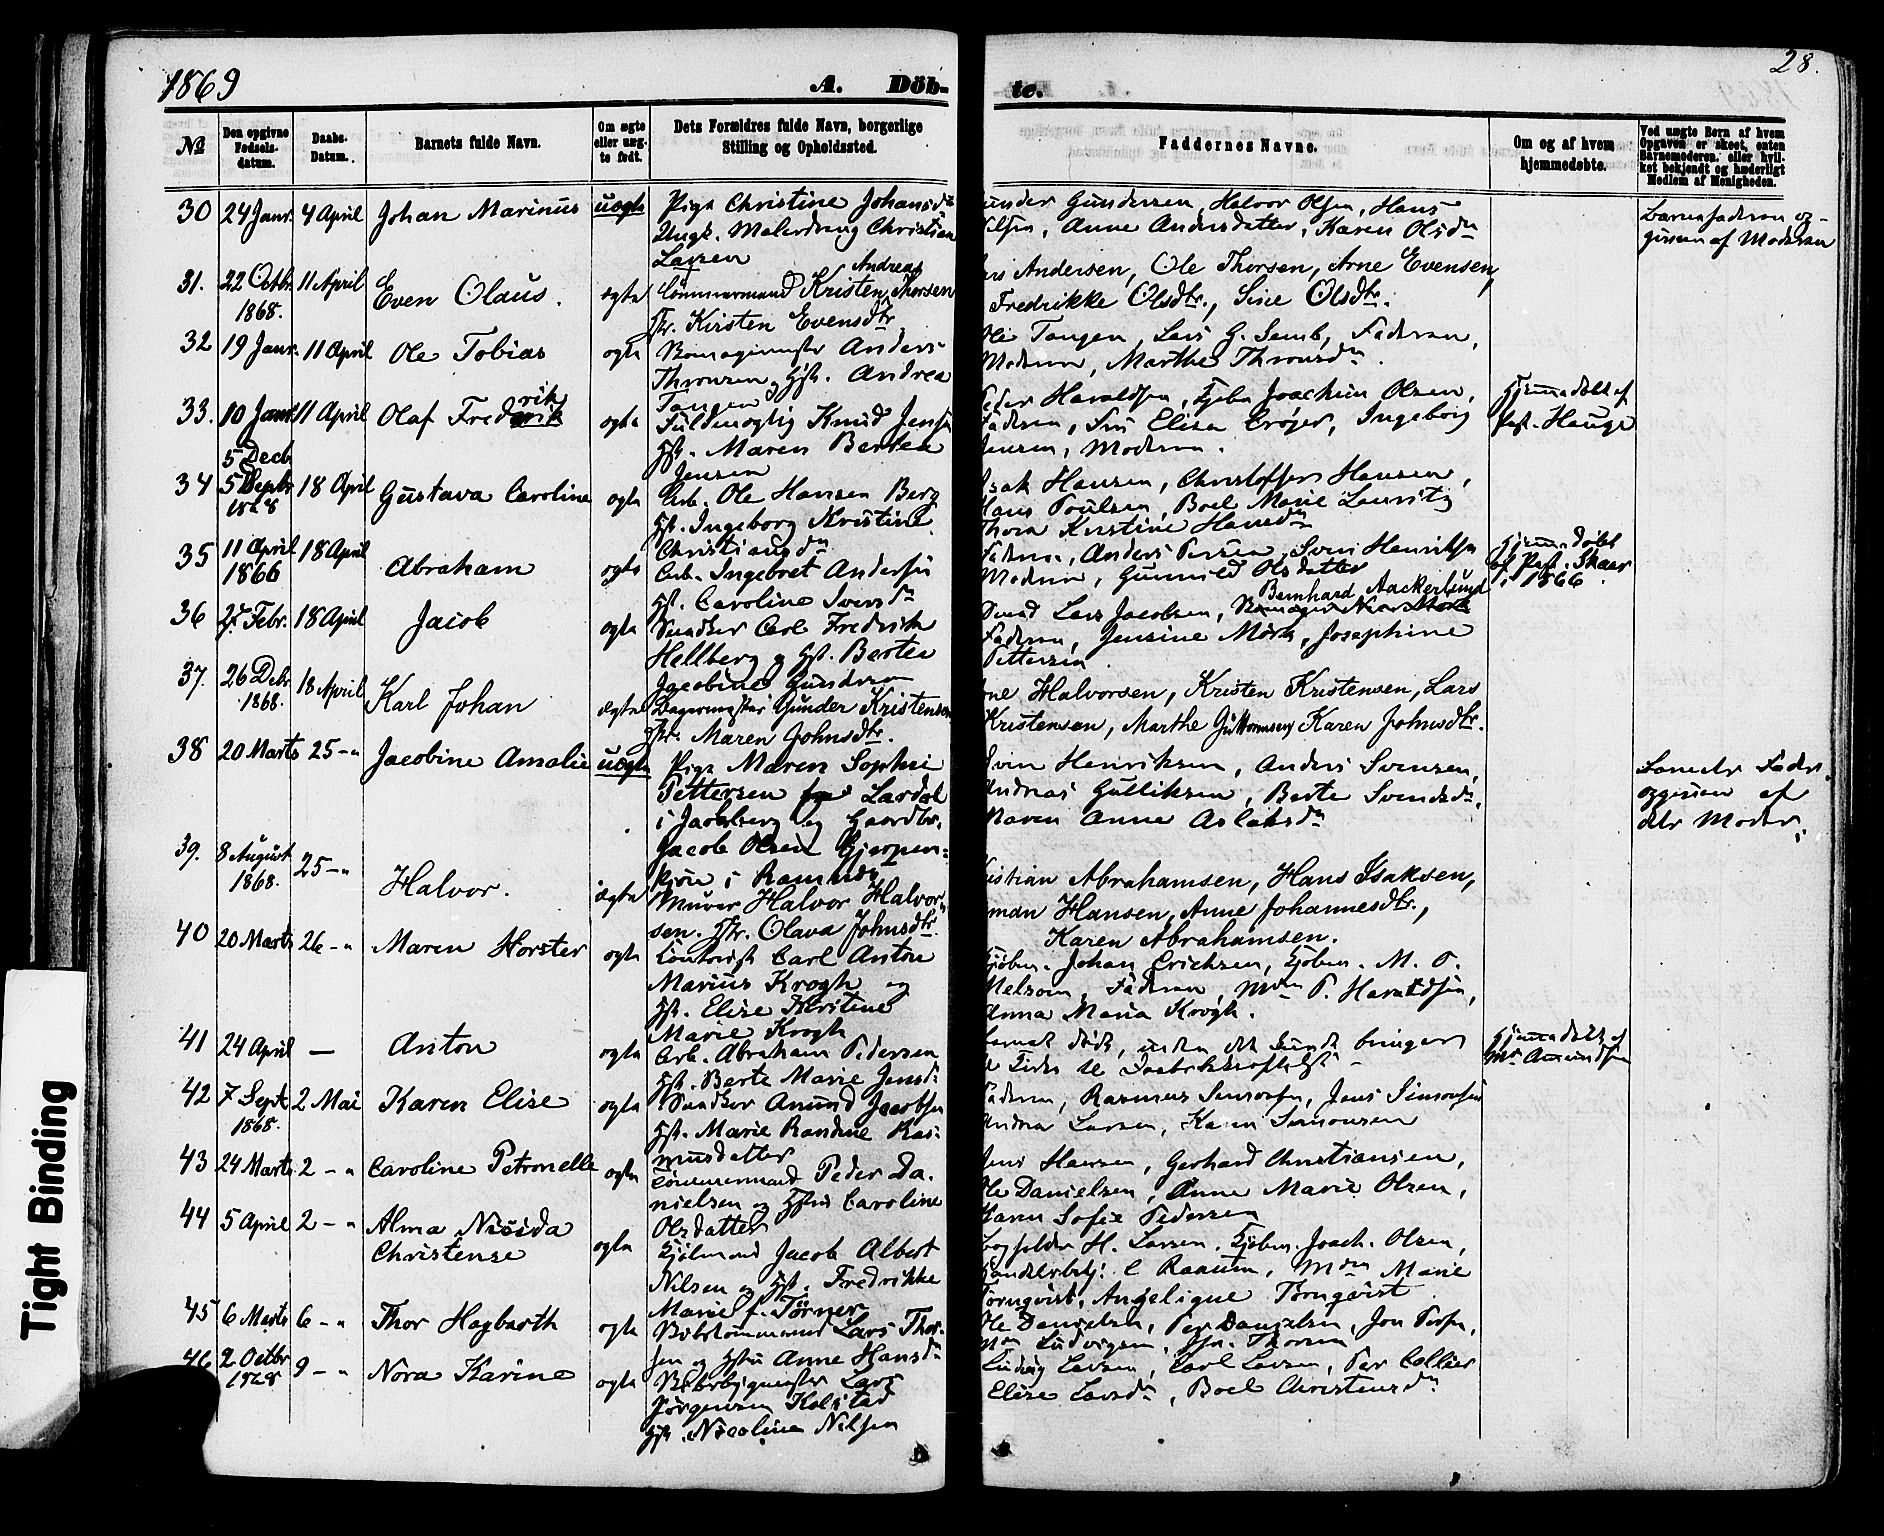 1869
A. Döb-
te.
28.
№
Den opgivne Fødsels-datum.
Daabs-Datum.
Barnets fulde Navn.
Om ægte eller uæg-te født.
Dets Forældres fulde Navn, borgerlige Stilling og Opholdssted.
Faddernes Navne.
Om og af hvem hjemmedøbte.
Ved uægte Børn af hvem Opgaven er skeet, enten Barnemoderen, eller hvil-ket bekjendt og hæderligt Medlem af Menigheden.
30 24 Janr. 4 April Johan Marinus uægte Pige Christine Johansdr
Ungk. Malerdreng Christian
Larsen
Gunder Gundersen, Halvor Olsen, Hans
Anne Andersdatter, Karen Olsdr
Barnefaderen op-
given af Moderen
31. 22 Octbr. 1868. 11 April Even Olaus. ægte Tømmermand Kristen Andreas Thorsen
Hr. Kirsten Evensdtr.
Andersen, Ole Thorsen, Arne Evensen,
Fredrikke Olsdtr., Sine Olsdtr.
32 19 Janr. 11 April Ole Tobias ægte Anders
Thronsen og Hst. Andrea
Tangen
Ole Tangen, Lars G. Semb, Faderen,
Moderen, Marthe Thronsdr.
33. 10 Janr. 11 April Olaf Frederik rik ægte Fuldmægtig Knud Jensen
Hst. Maren Bertea
Jensen
Peder Haraldsen, Joachim Olsen,
Faderen, Elisa Crøger, Ingeborg
Jensen, Moderen.
Hjemmedøbt af
Past. Hauge
34 5 Decb. 5 Septbr 1868 18 April Gustava Caroline ægte Arb. Ole Hansen Berg
Hst. Ingeborg Kristine
Christiansdr
Isak Hansen, Christoffer Hansen,
Hans Poulsen, Boel Marie Lauritz
Thora Kristine Hansdr
35 11 April 1866 18 April Abraham ægte Arb. Ingebret Andersen
Hst. Caroline Iversdr
Faderen, Anders Svend Henriksen
Moderen, Gunnild Olsdatter
Hjemmedøbt
af Past. Skaar
i 1866.
36 27 Febr. 18 April Jacob ægte Snedker Carl Fredrik
Hellberg og Hst. Berte
Jacobine
Smed Lars Jacobsen, Bernhard Aackerlund
Faderen, Jensine Mørk, Josephine
Pettersen
37. 26 Debr. 1868. 18 April Karl Johan ægte Bagermester Gunder Kristensen
Hstr. Maren Johnsdtr.
Halvorsen, Kristen Kristensen, Lars
Kristensen, Marthe Guttormsen, Karen Johnsdtr.
38 20 Marts 25 -"- Jacobine Amalie uægte Pige Maren Sophie
Pettersen Lardal
i Jarlsberg og Gaardbr.
Jacob Olsen Gjerpen-
i Ramnæs
Svin Henriksen, Anders Svensen,
Andreas Gulliksen, Berte Svendsdr,
Maren Anne Aslaksdr
Barnets Fader
opgiven af
dets Moder.
39. 8 August 1868. 25 -"- Halvor. ægte Murer Halvor Halvor-
sen. Hstr. Olava Johnsdtr.
Kristian Abrahamsen, Hans Isaksen,
Hansen, Anne Johannesdtr.,
Karen Abrahamsen.
40 20 Marts 26 -"- Maren Horster ægte Carl Anton
Marius Krogh og
Hst. Elise Kirstine
Marie Krogh
Kjøbm. Johan Erichsen, Kjøbm. M. O.
Melsom, Faderen, Mdm P. Haraldsen,
Anna Maria Krogh.
41 24 April — Anton ægte Arb. Abraham Pedersen
Hst. Berte Marie Jensdr
Barnet døde, inden det kunde bringes
til Kirke til Daabsbekræftelse
Hjemmedøbt af
Mdm Amundsen
42 7 Sept 1868. 2 Mai Karen Elise ægte Snedker Amund Jacobsen
Hst. Marie Randine Ras-
musdatter
Faderen, Rasmus Simonsen, Jens Simonsen
Andrea Larsen, Karen Simonsen
43 24 Marts 2 -"- Caroline Petronelle ægte Tømmermand Peder Da-
nielsen og Hstru Caroline
Olsdatter
Jens Hansen, Gerhard Christiansen,
Ole Danielsen, Anne Marie Olsen,
Karen Sofie Pedersen
44 5 April 2 -"- Alma Nisida Christense ægte Jacob Albert
Nilsen og Hst. Fredrikke
Marie f. Tørner
H. Larsen, Kjøbm. Joach. Olsen,
C Raaum, Mdm Marie
Tørnqvist, Angelique Tørnqvist
45 6 Marts 6 -"- Thor Hagbarth ægte Lars Thor-
sen og Hstru Anne Hansdr
Ole Danielsen, Per Danielsen, Jon
Mdm Ludvigsen, Thorsen
46 2 Octbr 1868 9 -"- Nora Karine ægte Lars
Jørgensen Kolstad
Hst. Nicoline Nilsen
Ludvig Larsen, Carl Larsen, Per Collier
Elise Larsdr, Boel Christensdr
Tight Binding